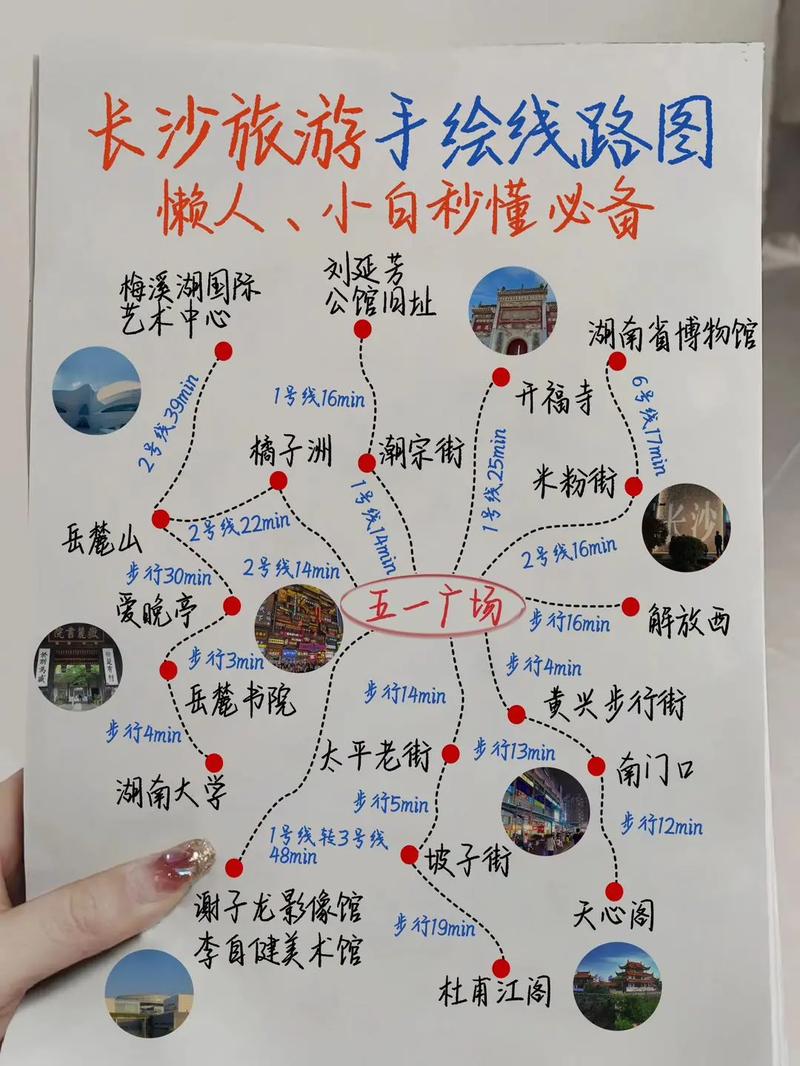 长沙旅游手绘线路图
懒人、小白秒懂必备
梅溪湖国际
艺术中心
刘延芳
公馆旧址
湖南省博物馆
开福寺
2号线39min
1号线16min
6号线17min
橘子洲
潮宗街
1号线25min
米粉街
长沙
岳麓山
2号线22min
1号线14min
2号线16min
步行30min
2号线14min
爱晚亭
五一广场
步行16min
解放西
岳麓书院
步行3min
步行4min
岳麓书院
步行14min
黄兴步行街
步行4min
湖南大学
太平老街
步行13min
南门口
步行5min
1号线转3号线
48min
坡子街
步行12min
谢子龙影像馆
李自健美术馆
步行19min
天心阁
杜甫江阁